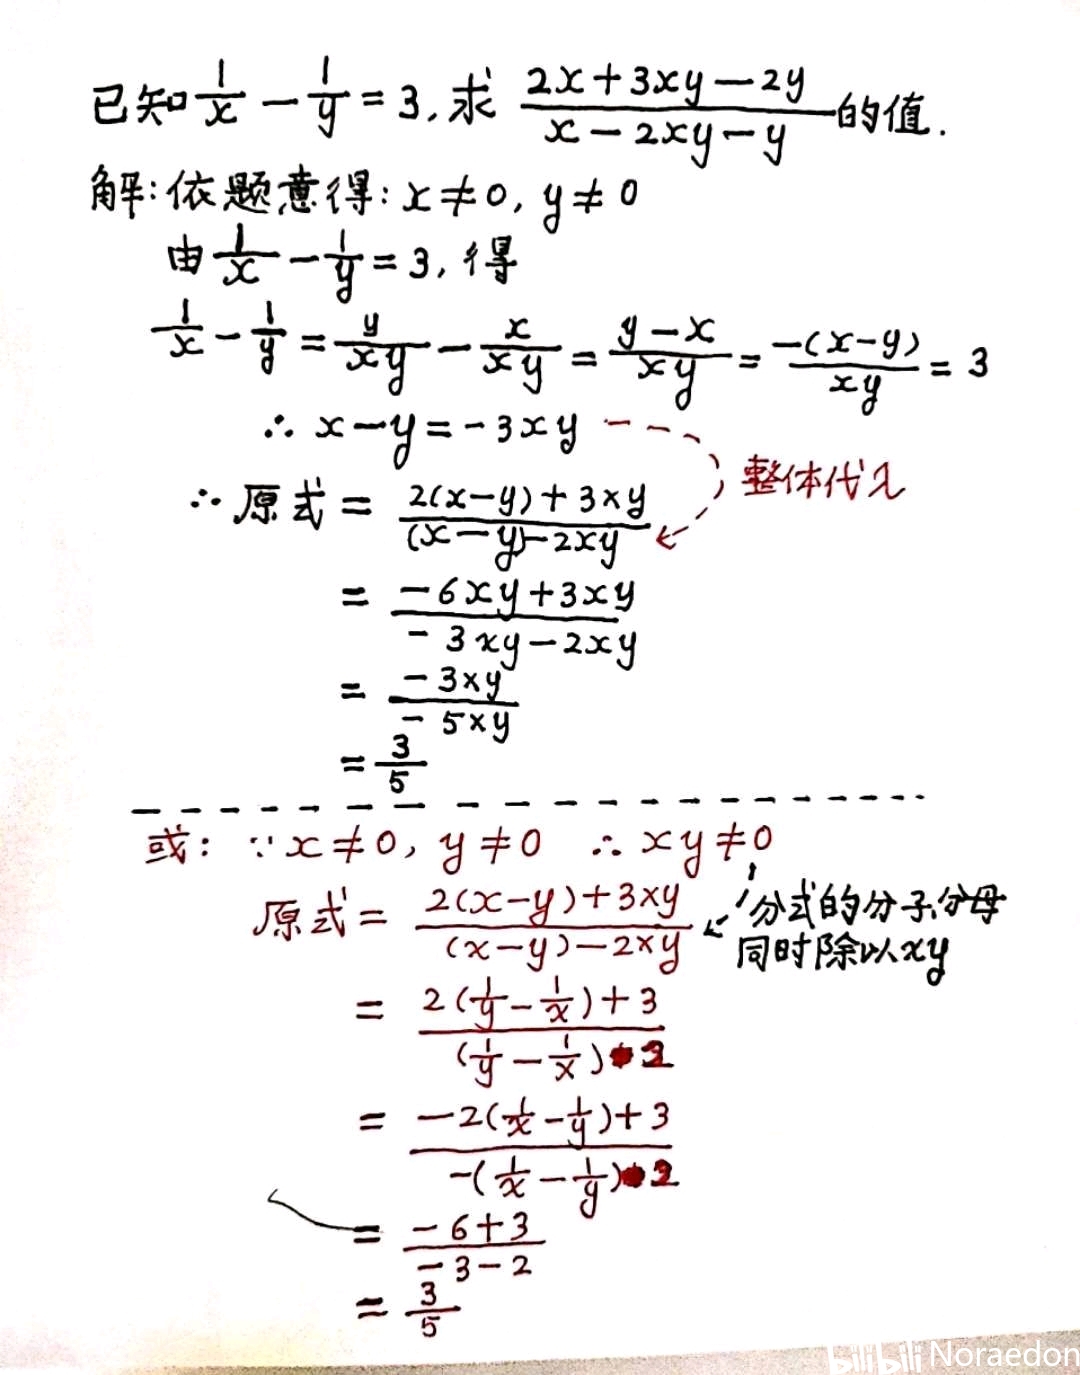 已知 1/x - 1/y = 3, 求 (2x+3xy-2y)/(x-2xy-y) 的值.
解: 依题意得: x≠0, y≠0
由 1/x - 1/y = 3, 得
1/x - 1/y = y/xy - x/xy = (y-x)/xy = -(x-y)/xy = 3
∴ x-y = -3xy
整体代入
∴ 原式 = (2(x-y)+3xy)/((x-y)-2xy)
= (-6xy+3xy)/(-3xy-2xy)
= (-3xy)/(-5xy)
= 3/5
或: ∵ x≠0, y≠0 ∴ xy≠0
原式 = (2(x-y)+3xy)/((x-y)-2xy)
分式的分子、分母
同时除以xy
= (2(1/y - 1/x)+3)/((1/y - 1/x)-2)
= (-2(1/x - 1/y)+3)/(-(1/x - 1/y)-2)
= (-6+3)/(-3-2)
= 3/5
bilibili Noraedon